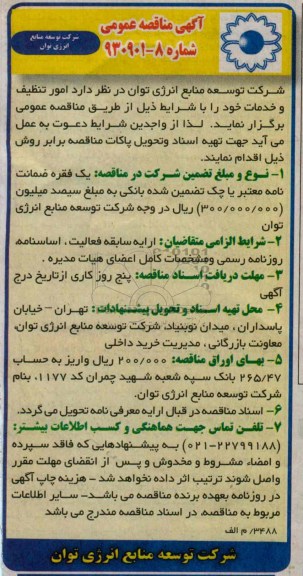 آگهی مناقصه عمومی
شماره ۸-۹۳۰۹۰۱
شرکت توسعه منابع
انرژی توان
شرکت توسعه منابع انرژی توان در نظر دارد امور تنظیف
و خدمات خود را با شرایط ذیل از طریق مناقصه عمومی
برگزار نمایند. لذا از واجدین شرایط دعوت به عمل
می آید جهت تهیه اسناد وتحویل پاکات مناقصه برابر روش
ذیل اقدام نمایند.
۱- نوع و مبلغ تضمین شرکت در مناقصه: یک فقره ضمانت
نامه معتبر یا چک تضمین شده بانکی به مبلغ سیصد میلیون
(۳۰۰/۰۰۰/۰۰۰) ریال در وجه شرکت توسعه منابع انرژی
توان
۲- شرایط الزامی متقاضیان: ارایه سابقه فعالیت، اساسنامه،
روزنامه رسمی ومشخصات کامل اعضای هیات مدیره.
۳- مهلت دریافت اسناد مناقصه: پنج روز کاری ازتاریخ درج
آگهی
۴- محل تهیه اسناد و تحویل پیشنهادات: تهران - خیابان
پاسداران، میدان نوبنیاد، شرکت توسعه منابع انرژی توان،
معاونت بازرگانی، مدیریت خرید داخلی
۵- بهای اوراق مناقصه: ۲۰۰/۰۰۰ ریال واریز به حساب
۲۶۵/۴۷ بانک سپه شعبه شهید چمران کد ۱۱۷۷، بنام
شرکت توسعه منابع انرژی توان.
۶- اسناد مناقصه در قبال ارایه معرفی نامه تحویل می گردد.
۷- تلفن تماس جهت هماهنگی و کسب اطلاعات بیشتر:
(۰۲۱-۲۲۷۹۹۱۸۸) به پیشنهادهایی که فاقد سپرده
و امضاء مشروط و مخدوش و پس از انقضای مهلت مقرر
واصل شوند ترتیب اثر داده نخواهد شد - هزینه چاپ آگهی
در روزنامه بعهده برنده مناقصه می باشد- سایر اطلاعات
مربوط به مناقصه، در اسناد مناقصه مندرج می باشد
۳۴۸۸/ م الف
شرکت توسعه منابع انرژی توان